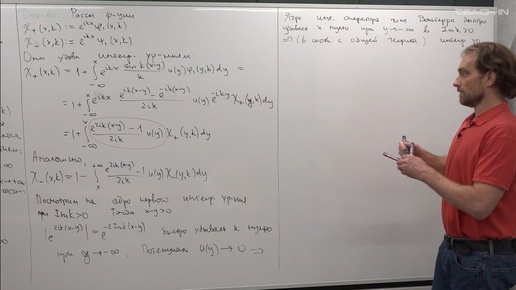 Рассм ф-ции
χ₊(x,k) := e^{ikx} φ₁(x,k)
χ₋(x,k) := e^{ikx} ψ₁(x,k)
Они удовл интегр. ур-ниям
χ₊(x,k) = 1 + ∫_{-∞}^{x} e^{ikx} \frac{sin k(x-y)}{k} u(y) φ₁(y,k) dy =
= 1 + ∫_{-∞}^{x} e^{ikx} \frac{e^{ik(x-y)} - e^{-ik(x-y)}}{2ik} u(y) e^{-iky} χ₊(y,k) dy
= 1 + ∫_{-∞}^{x} \frac{e^{2ik(x-y)} - 1}{2ik} u(y) χ₊(y,k) dy
Аналогично:
χ₋(x,k) = 1 - ∫_{x}^{+∞} \frac{e^{2ik(x-y)} - 1}{2ik} u(y) χ₋(y,k) dy
Посмотрим на ядро первого интегр. ур-ния
при Im k > 0 Тогда x-y > 0
|e^{2ik(x-y)}| = e^{-2 Im k(x-y)} быстро убывает к нулю
при y → -∞. Поскольку u(y) → 0 ⇒
Ядро инт. оператора типа Вольтерра быстро
убывает к нулю при y → -∞ в Im k > 0
⇒ (в соотв с общей теорией) интегр ур